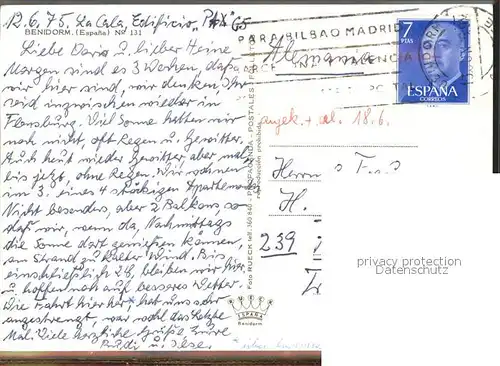 12.6.75. La Cala, Edificio „PAX“ G5
BENIDORM. (España) Nº 131
Liebe Doris u. lieber Heine
Morgen sind es 3 Wochen, daß
wir hier sind, wir denken, Ihr
seid inzwischen wieder in
Flensburg. Viel Sonne hatten wir
noch nicht, oft Regen u. Gewitter.
Auch heut wieder Gewitter aber mal
bis jetzt, ohne Regen. Wir wohnen
im 3. eines 4 stöckigen Apartements
Nicht besonders, aber 2 Balkons, so
daß wir, wenn da, Nachmittags
die Sonne dort genießen können,
am Strand zu kalter Wind. Bis
einschließlich 24, bleiben wir hier
u. hoffen noch auf besseres Wetter.
Die Fahrt hier her, hat uns sehr
angestrengt, war wohl das letzte
Mal. Viele herzliche Grüße Eure
u. Ilse.
Foto RUECK tel. 360 840 - PROPAGANDA - POSTALES
reproducción prohibida
ESPAÑA
Benidorm
PARA BILBAO MADRID
VALENCIA
Alemania
7
PTAS
ESPAÑA
CORREOS
angek. + al. 18.6.
Herrn
H.
239
privacy protection
Datenschutz